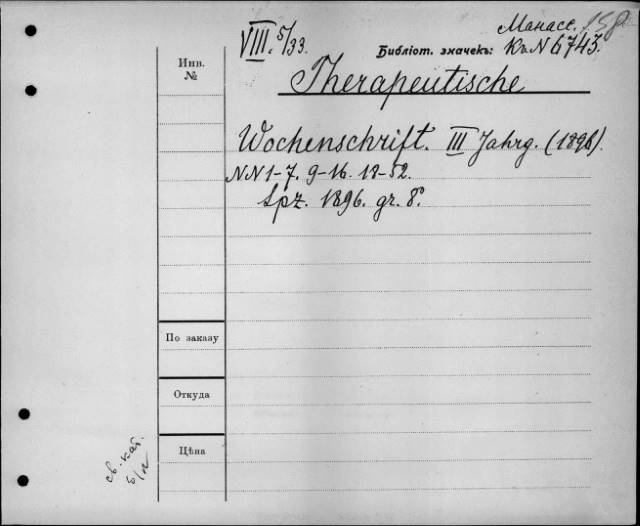 Манасс. 158
VIII. 5/33. Библіот. значекъ: Къ N 6743.
Инв.
№
Therapeutische
Wochenschrift. III Jahrg. (1896).
NN 1-7. 9-16. 18-52.
Lpz. 1896. gr. 8°.
По заказу
Откуда
Цѣна
св. кат.